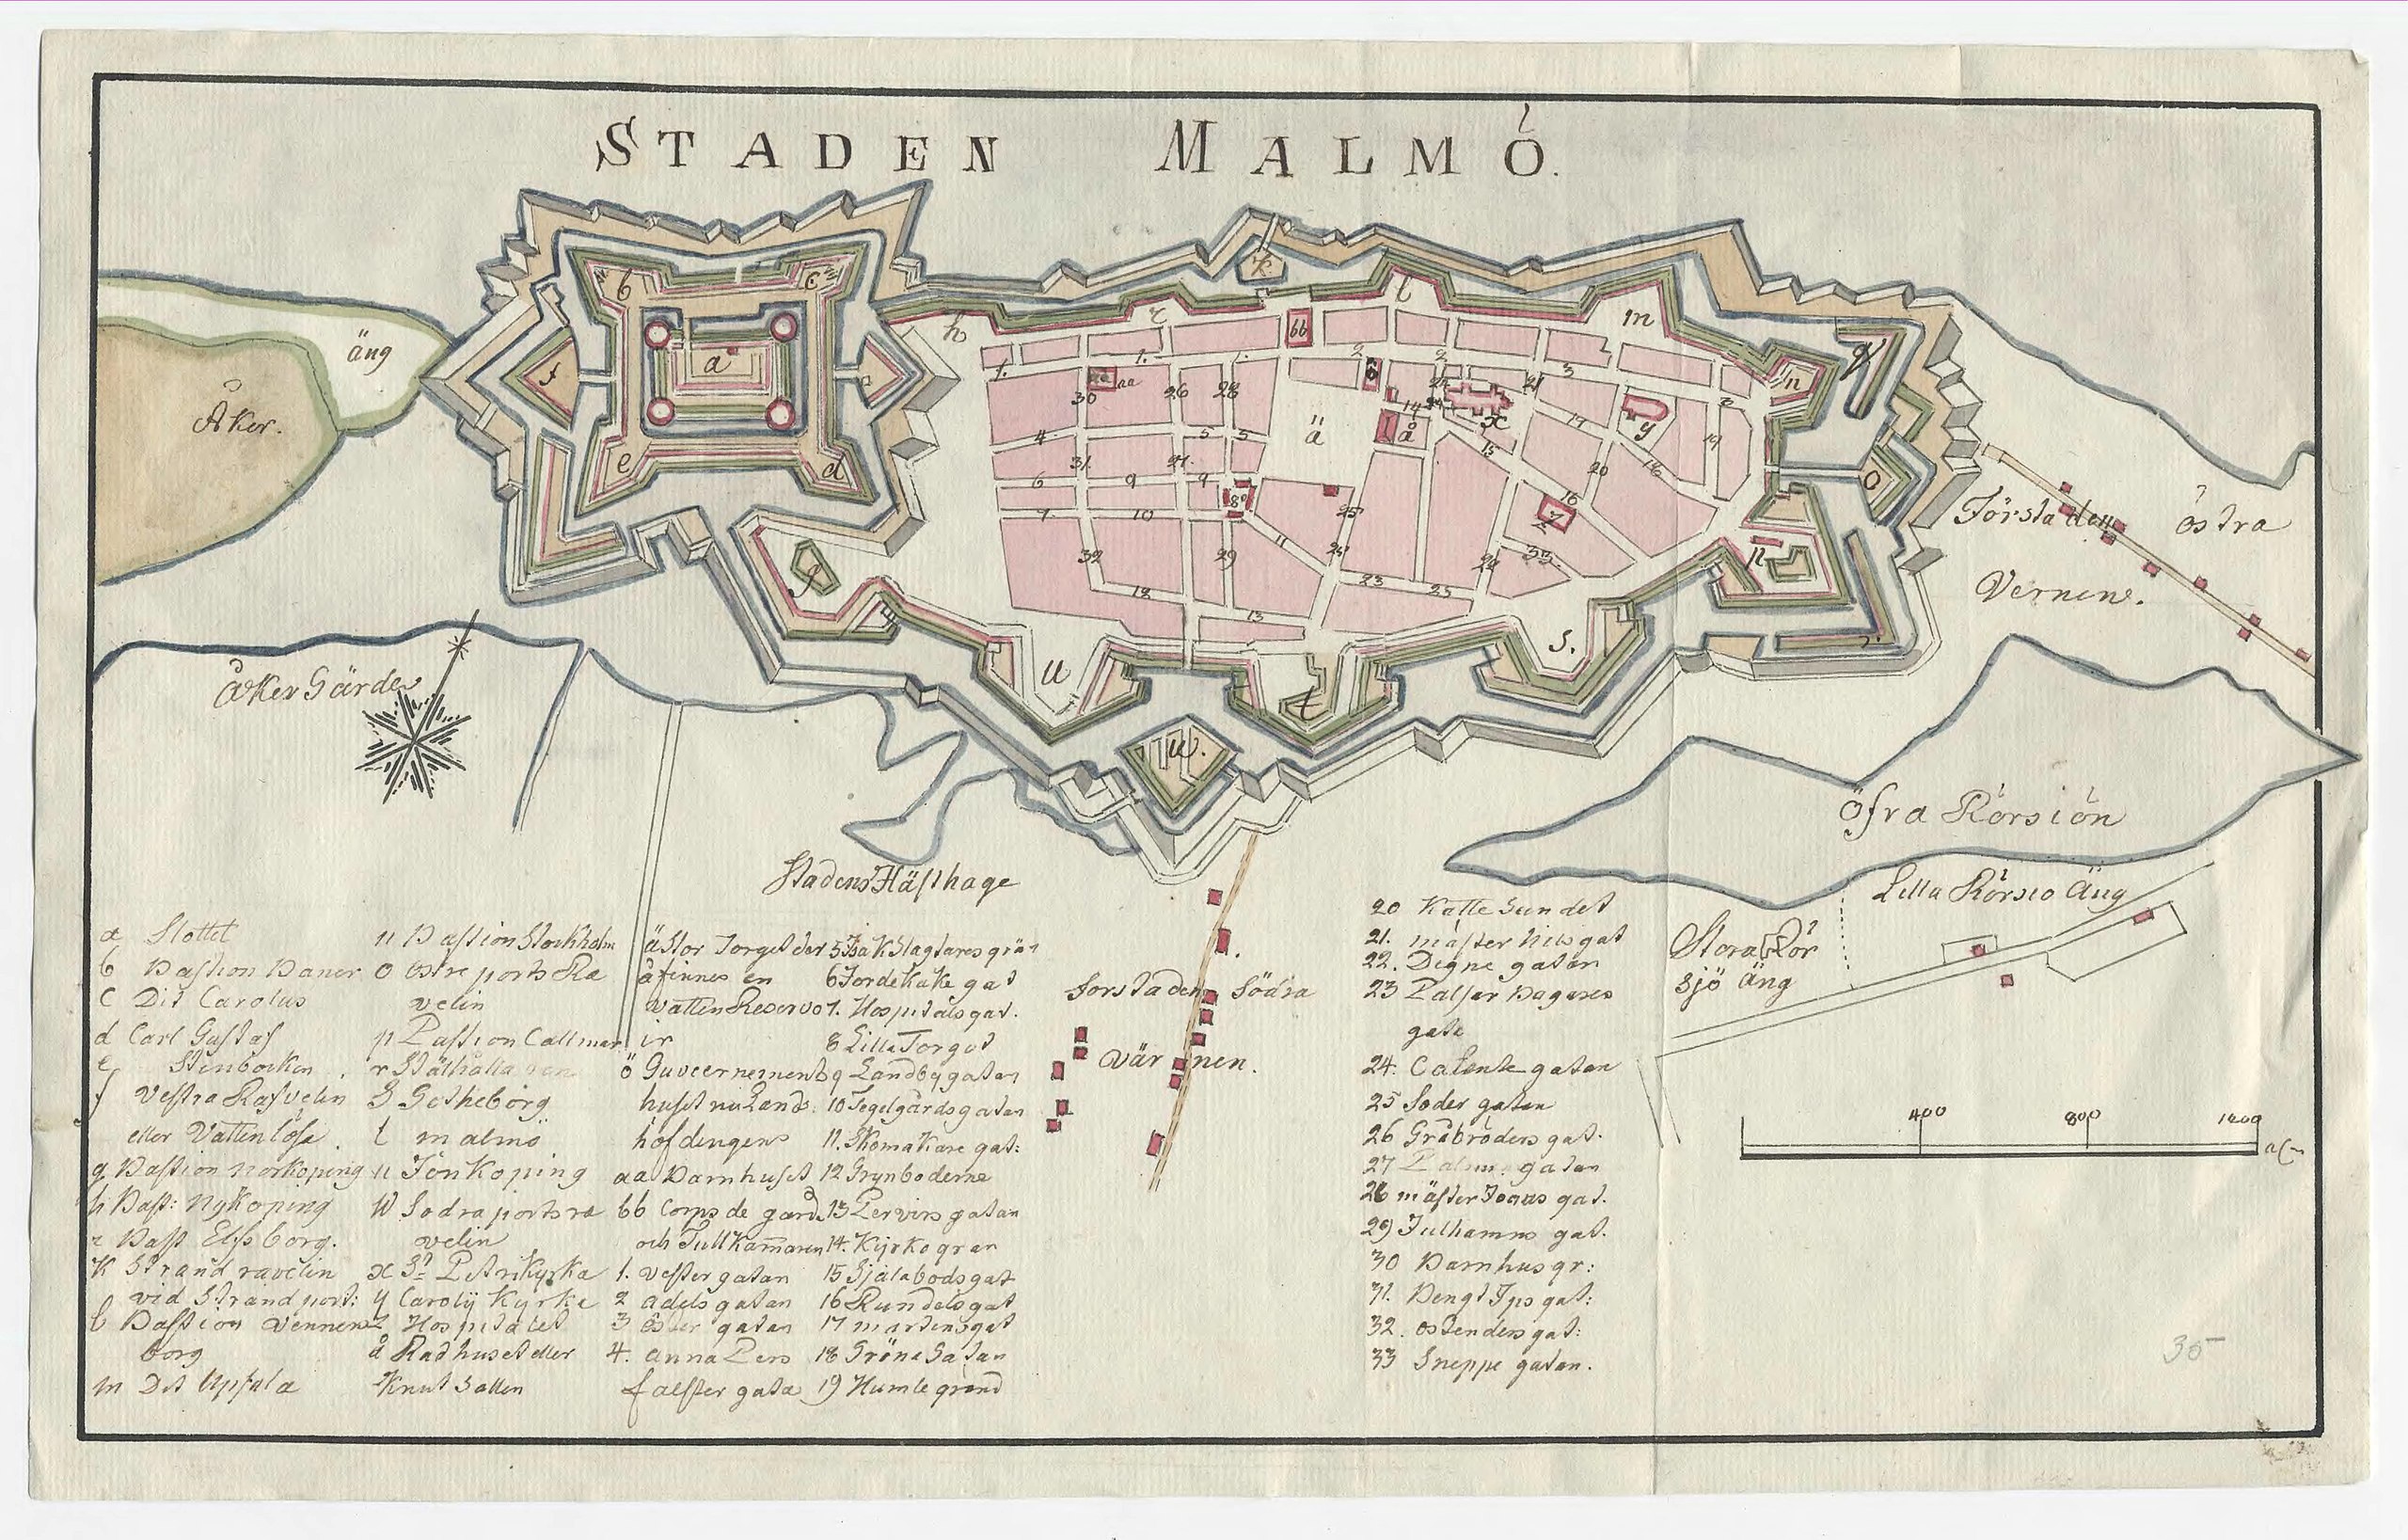 STADEN MALMÖ.
äng
Åker.
åker Gärde
Förstaden östra
Vernen.
Öfra Rörsiön
Lilla Rörsiö Äng
Stora Rör
sjö äng
Stadens Hästhage
Forstaden Södra
vär nen.
400 800 1200
a Slottet
b Bastion Baner
c Dit Carolus
d Carl Gustaf
e Stenbocken
f Vestra Rafvelin
eller Vattenlösa
g Bastion Norkoping
h Bast: Nykoping
r Bast Elfsborg.
K Strand ravelin
vid Strand port:
l Bastion Venners
borg
m Dit Upsala
n Bastion Stockholm
o östre ports Ra
velin
p Bastion Callmar
r Ståthålla
S Getheborg
t malmö
u Jönkoping
w Sodra ports ra
velin
x St Petri Kyrka
y Carolij Kyrke
z Hospitalet
å Radhuset eller
Knut Sallen
ä Stor Torget der
åfinnes en
Vatten Reservo
ir
ö Guvernements
huset nu Lands
höfdingens
aa Barnhuset
bb Corps de gard
och Tullkamaren
1. vester gatan
2 adels gatan
3 öster gatan
4. anna Pers
falster gata
5 Isak Slagtares grän
6 Jordekake gat
7. Hospitalsgat.
8 Lilla Torget
9 Landbygatan
10 Tegelgårdsgatan
11. Skomakare gat:
12 Grynboderne
13 Pervirs gatan
14. Kyrkogran
15 Själabodsgat
16 Rundelsgat
17 martensgat
18 Gröne Gatan
19 Humle gränd
20 Katte Sundet
21. mäster nils gat
22. Degne gatan
23 Balser Bageres
gate
24. Calente gatan
25 Soder gatan
26 Gråbröders gat.
27 Palme gatan
28 mäster Joans gat.
29 Julhamns gat.
30 Barnhus gr:
31. Bengt Ips gat:
32. ostenders gat:
33 Sneppe gatan.
35